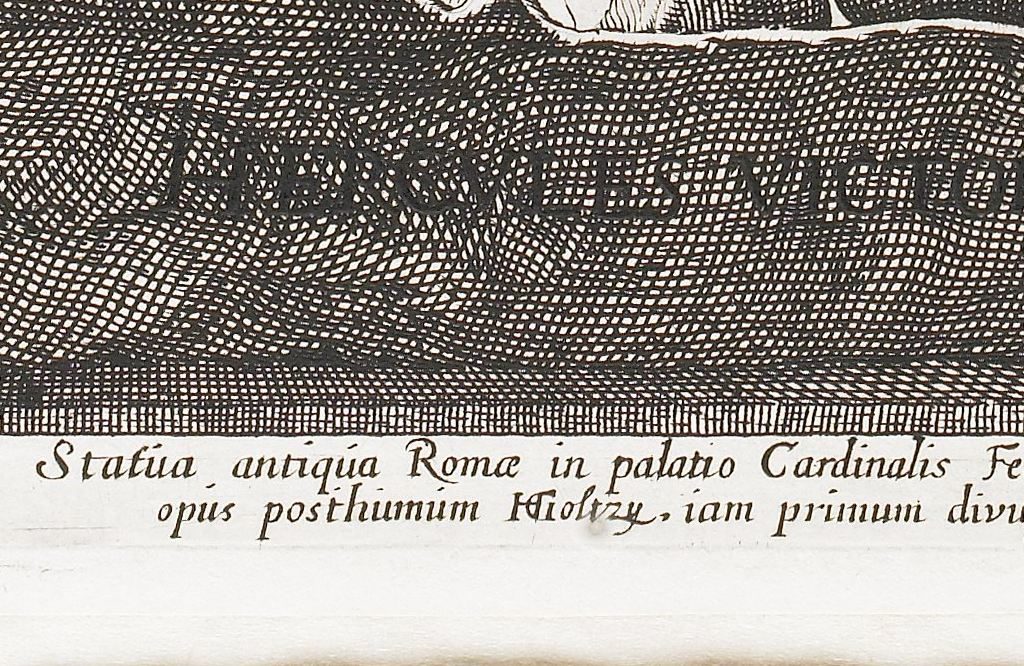 HERCVLES VICTO
Statúa antiqúa Romæ in palatio Cardinalis Fe
opús posthúmúm HGoltzy, iam primum divu